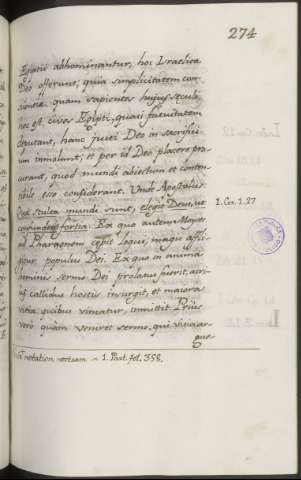 274
Egiptii abhominantur, hoc Israelica
Deo offerunt, quia simplicitatem con
scientiæ quam sapientes hujus seculi,
hoc est cives Egipti, quasi fatuitatem
devitant, hanc justi Deo in sacrifici-
um immolant, et per id Deo placere pro-
curant, quod mundi abiectum et contem-
tibile esse considerant. Unde Apostolus
Quæ stulta mundi sunt, elegit Deus, ut
confundat fortia. Ex quo autem Moyses
ad Pharaonem cepit loqui, magis affli-
gitur populus Dei. Ex quo in anima
hominis sermo Dei prolatus fuerit, acri-
us callidus hostis insurgit, et maiora
vitia, quibus vincatur, immittit. Prius
vero quam veniret sermo, qui vitia ar-
gue-
1. Cor. 1. 27
notation 1. Part. fol. 358.